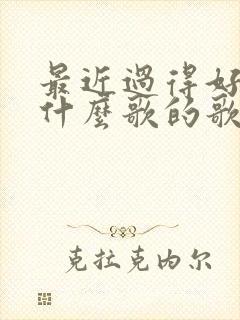 最近过得好
什麼歌的歌
克拉克内尔